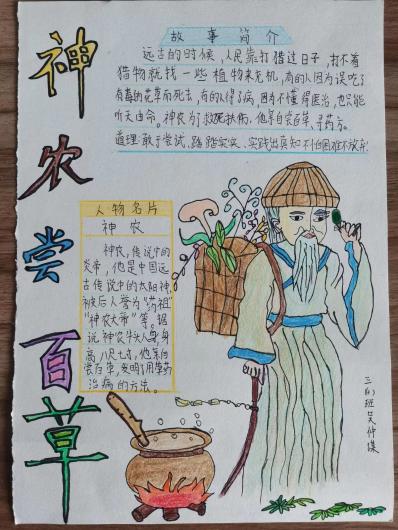 神农尝百草
故事简介
远古的时候,人民靠打猎过日子,打不着
猎物就找一些植物来充机,有的人因为误吃了
有毒的花草而死去,有的人得了病,因为不懂得医治,也只能
听天由命。神农为了救死扶伤,他亲自尝百草、寻药方。
道理:敢于尝试,踏踏实实,实践出真知不怕困难不放弃
人物名片
神农
神农,传说中的
炎帝,他是中国远
古传说中的太阳神,
被后人誉为“药祖”
“神农大帝”等。据
说神农牛头人身,身
高八尺七寸,他亲自
尝百草,发明了用草药
治病的方法。
班吴仲谋